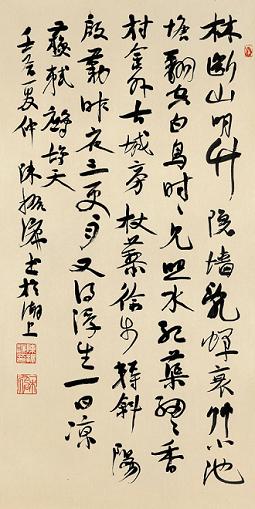 林断山明竹隐墙乱蝉衰草小池
塘翻空白鸟时々见照水红蕖细々香
村舍外古城旁杖藜徐步转斜阳
殷勤昨夜三更雨又得浮生一日凉
苏轼鹧鸪天
壬夏仲陈振濂书于湖上